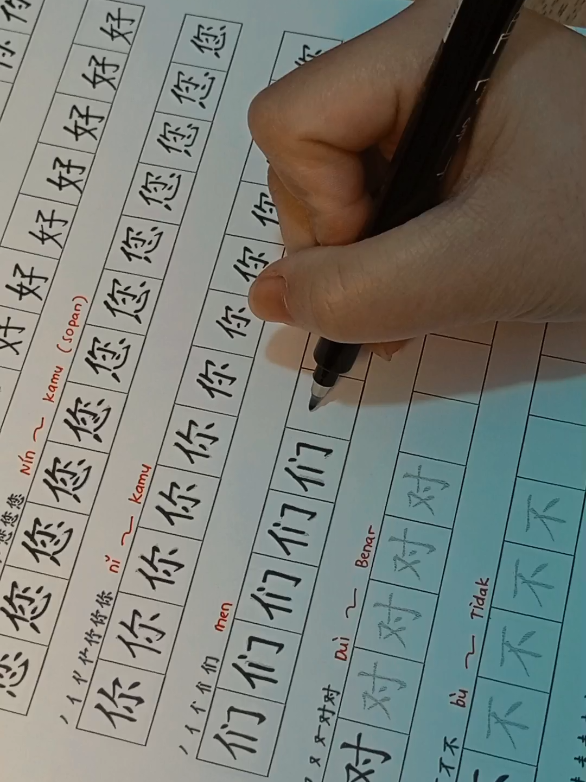 你 你
好 好 好 好 好 好 好
您 您 您 Nín ~ kamu (sopan)
您 您 您 您 您 您 您 您 您 您 您 您
丿 亻 亻 你 你 你 nǐ ~ kamu
你 你 你 你 你 你 你 你 你 你
丿 亻 亻 们 们 men
们 们 们 们 们
又 又 对 对 Duì ~ Benar
对 对 对 对 对
才 不 bù ~ Tidak
不 不 不 不